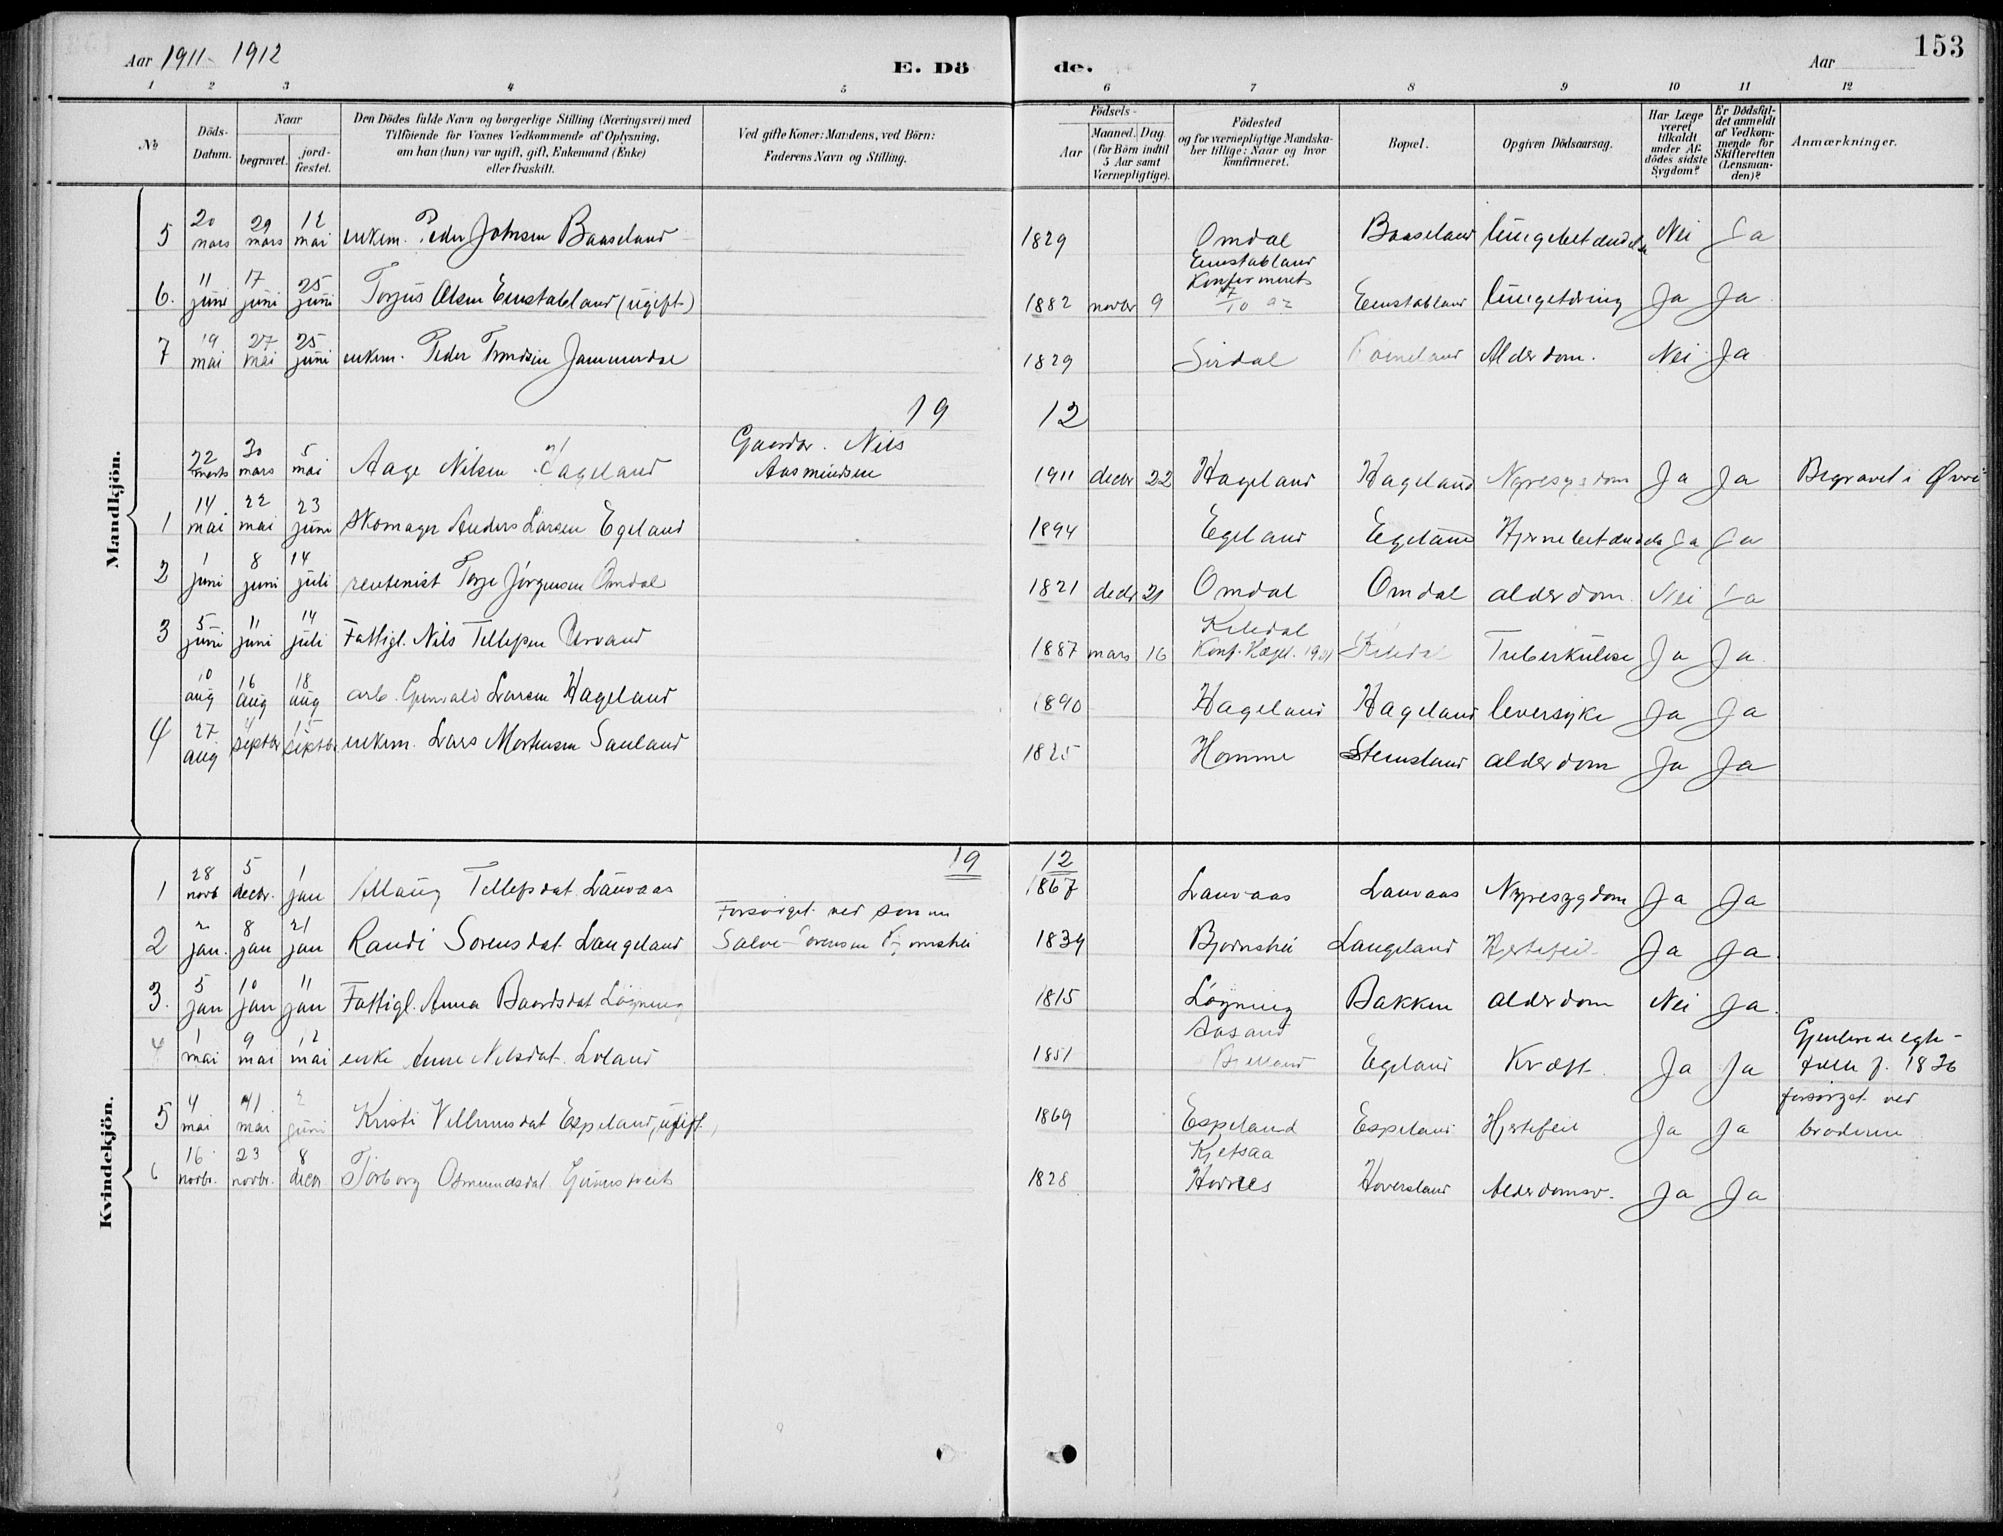 Aar 1911 - 1912
E. Dö
de.
Aar
153
1 2 3 4 5 6 7 8 9 10 11 12
№
Döds-Datum.
Naar
begravet.
jord-fæstet.
Den Dödes fulde Navn og borgerlige Stilling (Næringsvei) med
Tilföiende for Voxnes Vedkommende af Oplysning,
om han (hun) var ugift, gift, Enkemand (Enke)
eller fraskilt.
Ved gifte Koner: Mandens, ved Börn:
Faderens Navn og Stilling.
Födsels-
Aar
Maaned. Dag
(for Börn indtil
5 Aar samt
Værnepligtige).
Födested
og for værnepligtige Mandska-
ber tillige: Naar og hvor
konfirmeret.
Bopæl.
Opgiven Dödsaarsag.
Har Læge
været
tilkaldt
under Af-
dödes sidste
Sygdom?
Er Dödsfal-
det anmeldt
af Vedkom-
mende for
Skifteretten
(Lensman-
den)?
Anmærkninger.
Mandkjön.
5 20 mars 29 mars 12 mai enkem. Peder Johnsen Baaseland 1829 Omdal Baaseland lungebetændelse Nei Ja
6. 11 juni 17 juni 25 juni Torjus Olsen Eunstabland (ugift) 1882 novbr 9 Eunstabland Konfirmeret 17/10 92 Eunstabland lungetæring Ja Ja
7 19 mai 27 mai 25 juni enkem. Peder Trondsen Jammerdal 1829 Sirdal Alderdom. Nei Ja
19 12
22 marts 30 mars 5 mai Aage Nilsen Hageland Gaardbr. Nils Aasmundsen 1911 decbr 22 Hageland Hageland Nyresygdom Ja Ja Begravet i Øvre
1 14 mai 22 mai 23 juni Skomager Anders Larsen Egeland 1894 Egeland Egeland Hjernebetændelse Ja Ja
2 1 juni 8 juni 14 juli rentenist Terje Jörgensen Omdal 1821 decbr 21 Omdal Omdal alderdom Nei Ja
3 5 juni 11 juni 14 juli Fattigl. Nils Tellefsen 1887 mars 16 Kiledal Konf. Hægel. 1901 Kiledal Tuberkulose Ja Ja
10 aug 16 aug 18 aug arb. Gunvald Larsen Hageland 1890 Hageland Hageland leversyke Ja Ja
4 27 aug 4 septbr 15 septbr enkem. Lars Mortensen Sauland 1825 Homme Stemsland alderdom Ja Ja
Kvindekjön.
19 12
1 28 novb 5 decbr. 1 jan Allaug Tellefsdat. Lauvaas 1867 Lauvaas Lauvaas Nyresygdom Ja Ja
2 2 jan. 8 jan 21 jan Randi Sorensdat Langeland Forsörget ved sönnen Salve Sorensen Bjornshei 1834 Bjornshei Langeland Hjertefeil Ja Ja
3. 5 jan 10 jan 11 jan Fattigl. Anna Baardsdat Löyning 1815 Löyning Bakken alderdom Nei Ja
4 1 mai 9 mai 12 mai enke Anne Nilsdat. Loland 1851 Aasand Bjelland Egeland Kræft Ja Ja Gjenlevende egte-
fælle f. 1836
5 4 mai 11 mai 2 juni Kristi Vellumsdat Espeland, ugift, 1869 Espeland Espeland Hjertefeil Ja Ja forsörget ved
broderen
6 16 novbr. 23 novbr. 8 decbr Torborg Osmundsdat. Gunnstveit 1828 Kjetsaa Hornes Hoversland Alderdomsv. Ja Ja